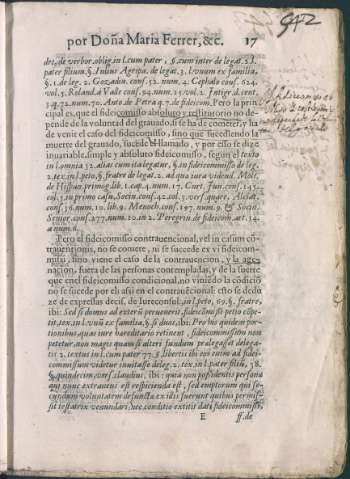 942
por Doña Maria Ferrer, &c. 17
dri, de verbor. oblig. in l. cum pater, §. cum inter de legat. 2. l.
pater filium. §. Iulius Agrippa, de legat. 3. l. vnum ex familia,
§. 1. de leg. 2. Gozadin. conf. 32. num. 4. Cephalo conf. 624.
vol. 5. Roland. à Valle conf. 94. num. 15. vol. 2.
q. 72. num. 70. Auto de Petra q. 7. de fideicom. Pero la prin
cipal es, que el fideicomisso absoluto y restitutorio no de-
pende de la voluntad del grauado si se ha de conuertir, y ha
de venir el caso del fideicomisso, sino que sucediendo la
muerte del grauado, sucede el llamado, y por esso se dize
inuariable, simple y absoluto fideicomisso, segun el texto
in l. omnia 32. alias cum ita legatur, §. in fideicommisso de leg.
2. tex. in l. peto, §. fratre de legat. 2. ad qua iura vidend. Moli.
de Hispan. primog. lib. 1. cap. 4. num. 17. Curt. Iun. conf. 145.
col. 3. in primo casu, Socin. conf. 42. col. 3. vers. quare, Alciat.
conf. 36. num. 10. lib. 9. Menoch. conf. 197. num. 9. & Socin.
Senior. conf. 277. num. 10. in 2. Peregrin. de fideicom. art. 14.
à num. 6.
Pero el fideicomisso contrauencional, vel in casum cō-
trauentionis, no se conuerte, ni se sucede ex vi fideicom-
missi, sino viene el caso de la contrauencion, y la age-
nacion, fuera de las personas contempladas, y de la suerte
que en el fideicomisso condicional, no viniēdo la cōdiciō
no se sucede por el: assi en el contrauēcional: esto se dedu
ze de expressas decis. de Iureconsul. in l. peto, 69. §. fratre,
ibi: Sed si domus ad exteros peruenerit, fideicomissi petitio compe-
tit, tex. in l. vnū ex familia, §. si duos, ibi: Pro his quidem por-
tionibus, quas iure hæreditario retinent, fideicommissum non
petetur, non magis quam si alteri fundum prælegasset delega-
tis 2. textus in l. cum pater 77. § libertis ibi non enim ad fidei-
commissum videtur inuitasse deleg. 2. tex. in l. pater filiū, 38.
§. quindecim, vers. claudius, ibi: quia non possidentis persona
qui nunc extraneus est respicienda est, sed emptorum qui se-
cundum voluntatem defunctæ ex illis fuerunt quibus permis-
sit testatrix venundari, nec conditio extitit dati fideicommissi,
E ff. de